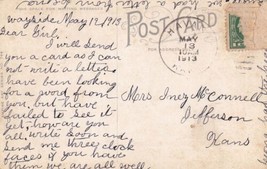 Wayside May 12, 1913.
Dear Girl.
I will send
you a card as I can
not write a letter.
have been looking
for a word from
you, but have
failed to see it
yet, how are you
all, write soon and
send me three clock
faces if you have
them we are all well.
POST CARD
MAY
13
1913
Mrs Inez McConnell
Jefferson
Kans